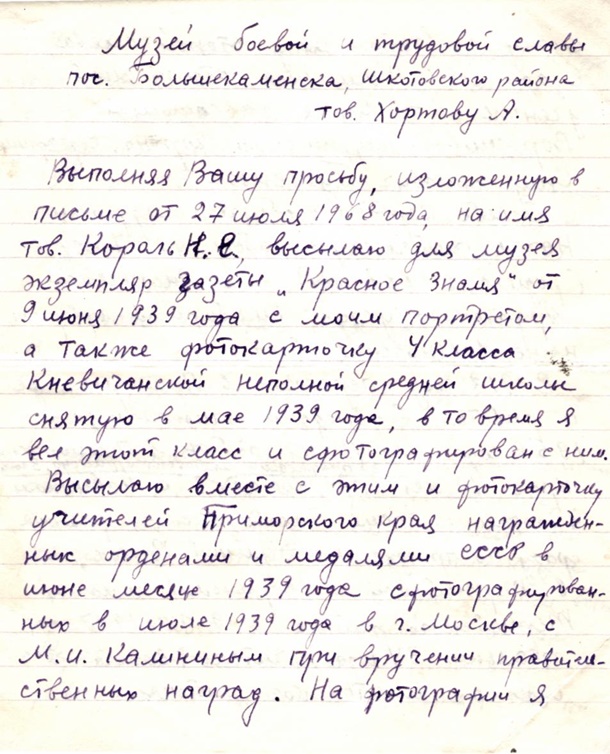 Музей боевой и трудовой славы
пос. Большекаменска, Шкотовского района
тов. Хортову А.
Выполняя Вашу просьбу, изложенную в
письме от 27 июля 1968 года, на имя
тов. Король Н.С., высылаю для музея
экземпляр газеты „Красное Знамя" от
9 июня 1939 года с моим портретом,
а также фотокарточку 4 класса
Кневичанской неполной средней школы
снятую в мае 1939 года, в то время я
вел этот класс и сфотографирован с ним.
Высылаю вместе с этим и фотокарточку
учителей Приморского края награжден-
ных орденами и медалями СССР в
июне месяце 1939 года сфотографирован-
ных в июле 1939 года в г. Москве, с
М.И. Калининым при вручении правите-
ственных наград. На фотографии я